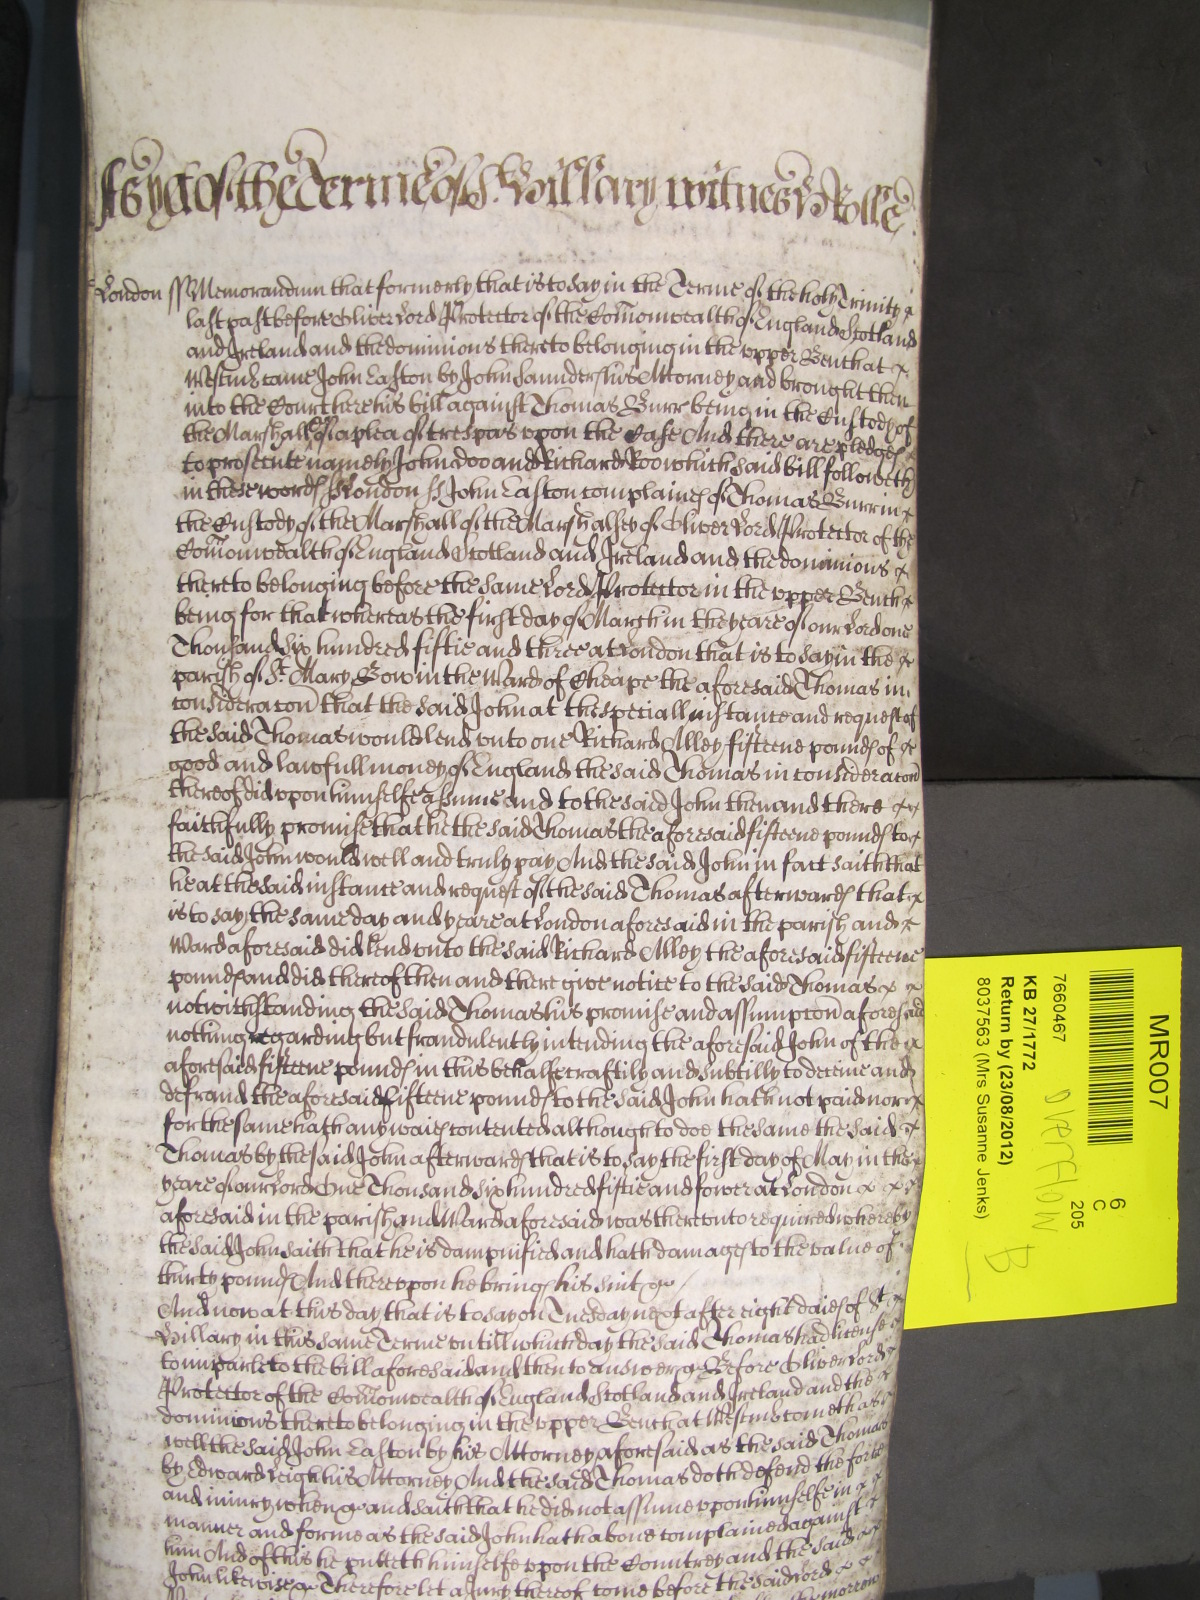 As yet of the Terme of St. Hillary witnes H Rolle
London ss Memorandum that formerly that is to say in the Terme of the holy Trinity
last past before Oliver Lord Protector of the Comonwealth of England Scotland
and Ireland and the dominions thereto belonging in the upper Bench at
Westmr came John Easton by John Saunders his Attorney and brought then
into the Court here his bill against Thomas Burr being in the Custody of
the Marshall of a plea of trespas upon the Case And there are pledges
to prosecute namely John doo and Richard Roo which said bill followeth
in these words ss London ss John Easton complaines of Thomas Burr in
the Custody of the Marshall of the Marshalsey of Oliver Lord Protector of the
Comonwealth of England Scotland and Ireland and the dominions
thereto belonging before the same Lord Protector in the upper Bench
being for that whereas the first day of March in the yeare of our Lord one
Thousand Six hundred fiftie and three at London that is to say in the
parish of St. Mary Bow in the Ward of Cheape the aforesaid Thomas in
consideracon that the said John at the speciall instance and request of
the said Thomas would lend unto one Richard Alley fifteene pounds of
good and lawfull money of England the said Thomas in consideracon
thereof did upon himselfe assume and to the said John then and there
faithfully promise that he the said Thomas the aforesaid fifteene pounds to
the said John would well and truly pay And the said John in fact saith that
he at the said instance and request of the said Thomas afterwards that
is to say the same day and yeare at London aforesaid in the parish and
Ward aforesaid did lend unto the said Richard Alley the aforesaid fifteene
pounds and did thereof then and there give notice to the said Thomas
notwithstanding the said Thomas his promise and assumpcon aforesaid
nothing regarding but fraudulently intending the aforesaid John of the
aforesaid fifteene pounds in this behalfe craftily and subtilly to deceive and
defraud the aforesaid fifteene pounds to the said John hath not paid nor
for the same hath any waies contented although to doe the same the said
Thomas by the said John afterwards that is to say the first day of May in the
yeare of our Lord One Thousand Six hundred fiftie and fower at London
aforesaid in the parish and Ward aforesaid was thereunto required whereby
the said John saith that he is dampnified and hath damages to the value of
thirty pounds And thereupon he brings his suit &c
And now at this day that is to say on Tuesday next after eight daies of St
Hillary in this same Terme untill which day the said Thomas had license
to imparle to the bill aforesaid and then to answer &c Before Oliver Lord
Protector of the Comonwealth of England Scotland and Ireland and the
dominions thereto belonging in the upper Bench at Westmr cometh as
well the said John Easton by his Attorney aforesaid as the said Thomas
by Edward Leigh his Attorney And the said Thomas doth defend the force
and iniury when &c and saith that he did not assume upon himselfe in
manner and forme as the said John hath above complained against
him And of this he putteth himselfe upon the Countrey and the said
John likewise &c Therefore let a Jury thereof come before the said Lord
morrow
MR007
6
C
205
7660467
KB 27/1772
Return by (23/08/2012)
8037563 (Mrs Susanne Jenks)
overflow
B